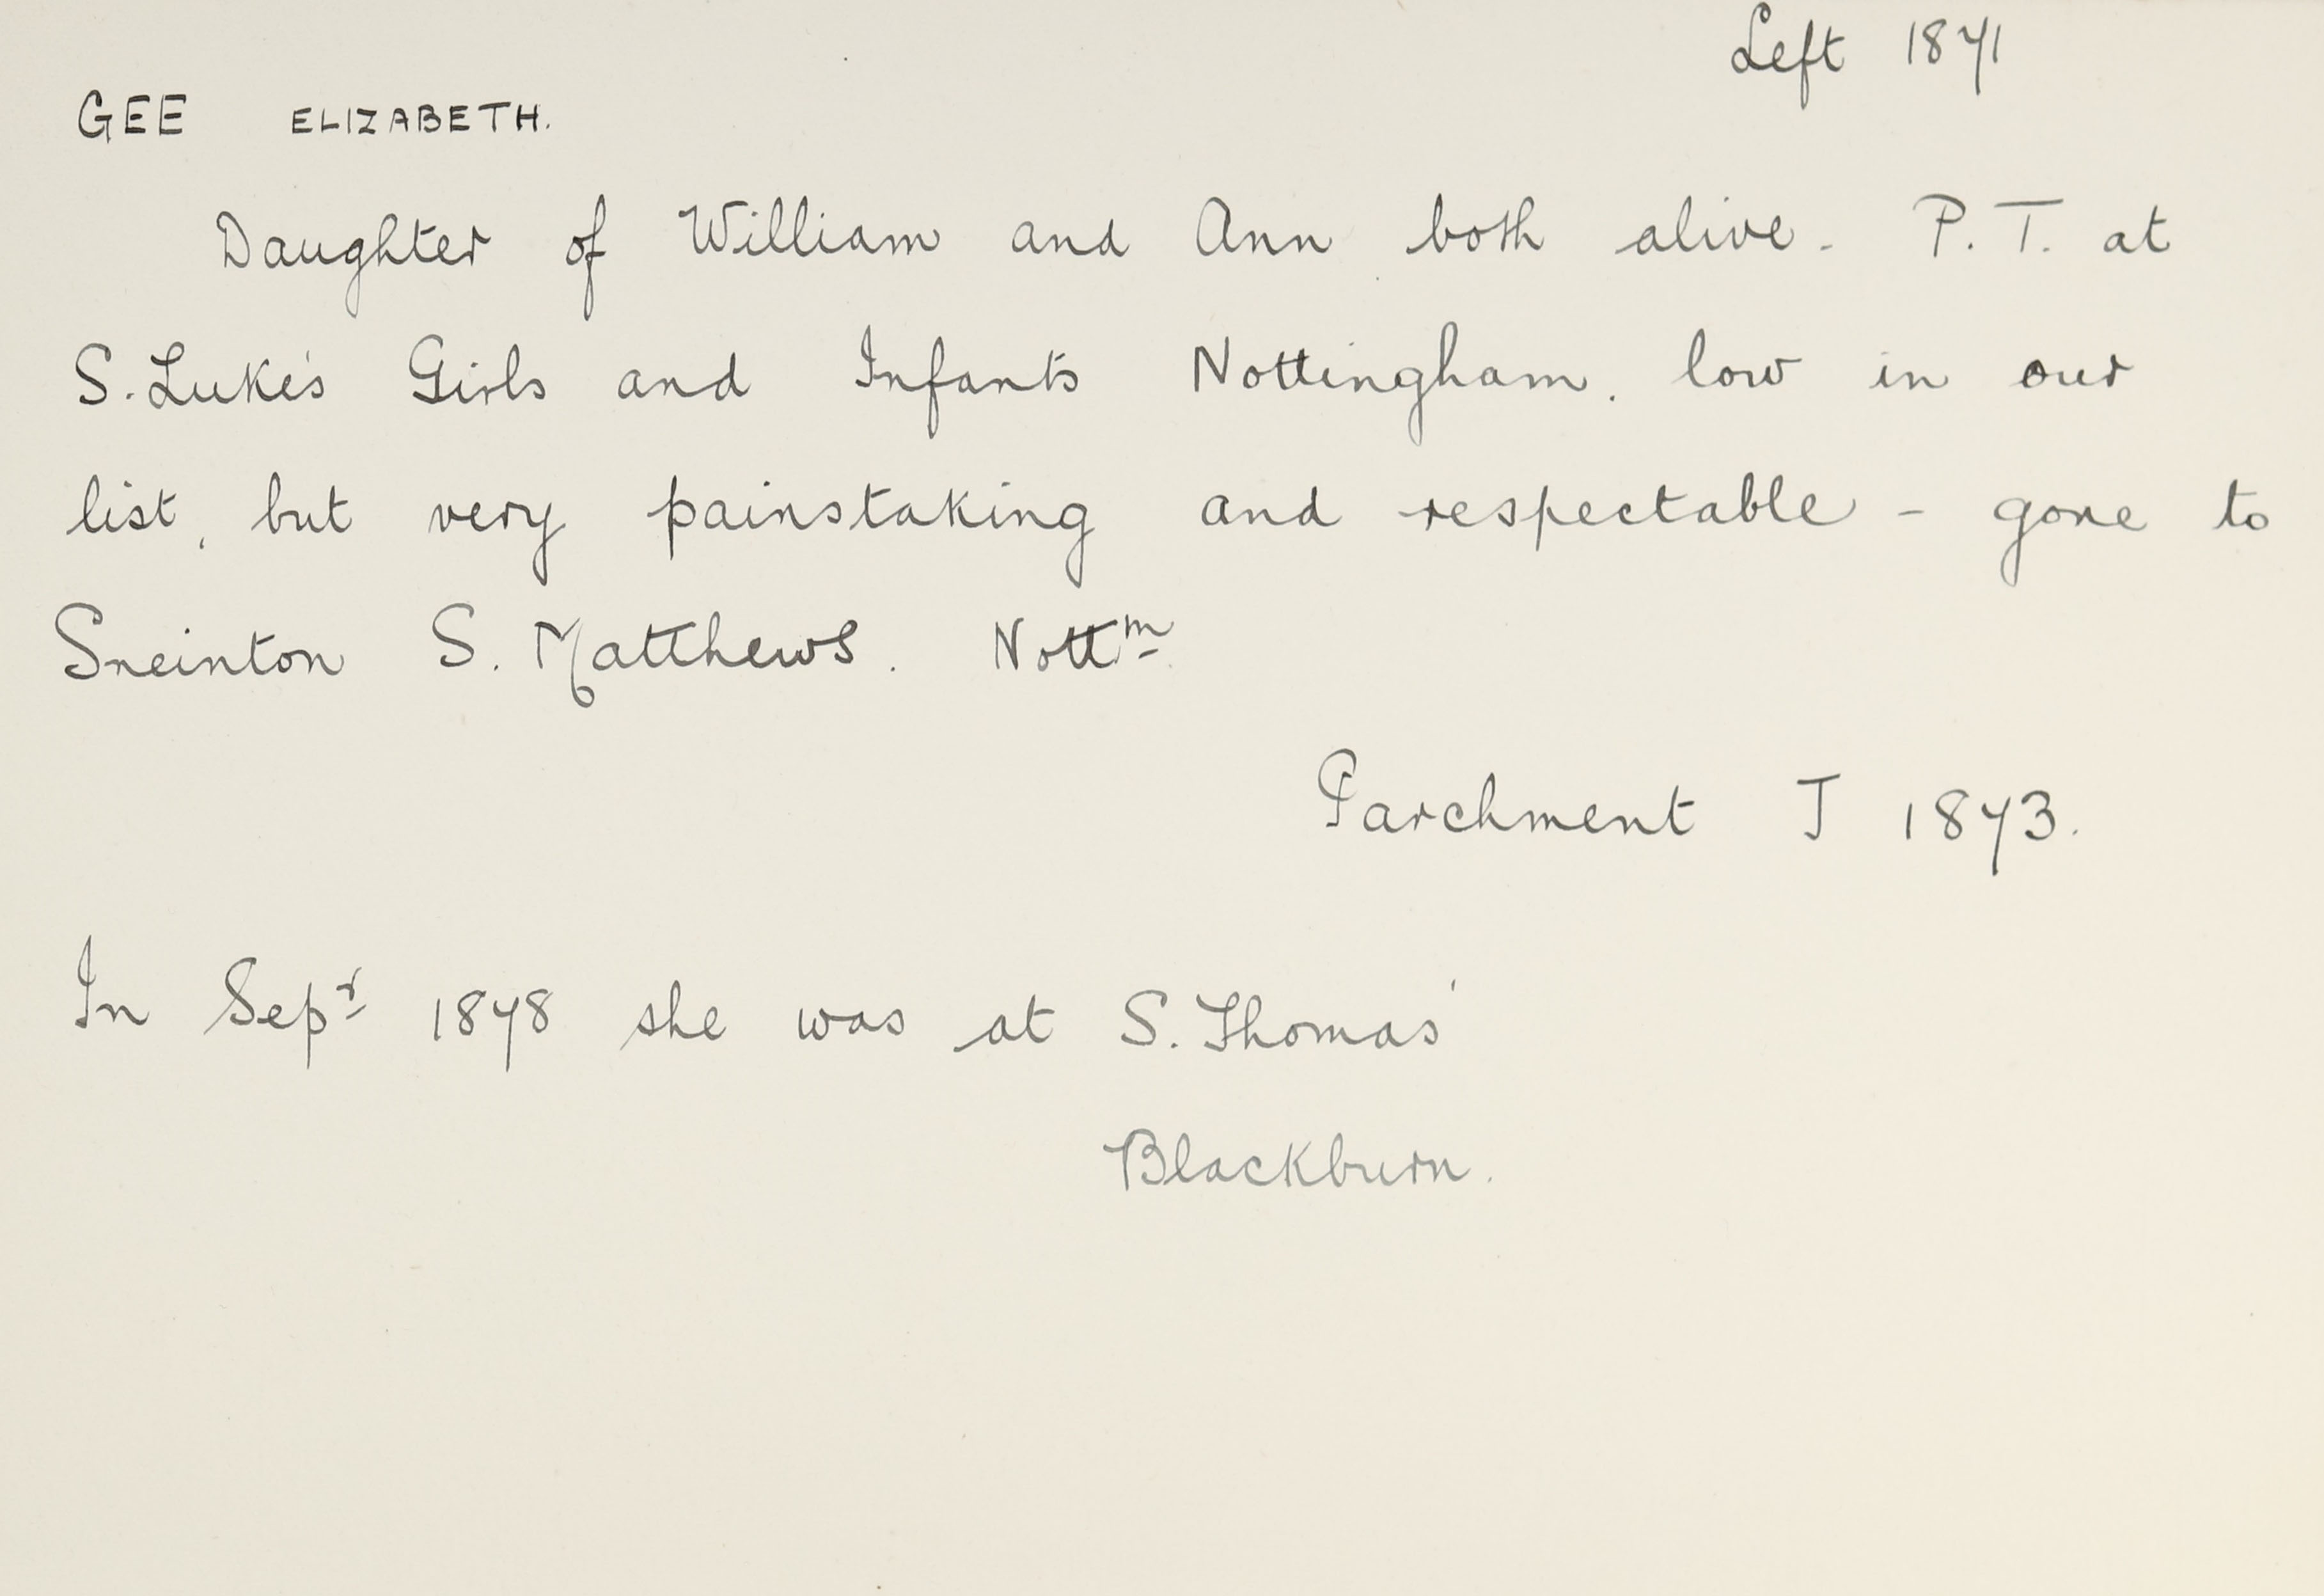 Left 1871
GEE ELIZABETH.
Daughter of William and Ann both alive. P.T. at
S. Luke's Girls and Infants Nottingham. low in our
list, but very painstaking and respectable - gone to
Sneinton S. Matthews. Nottm
Parchment J 1873.
In Sepr 1878 she was at S. Thomas'
Blackburn.